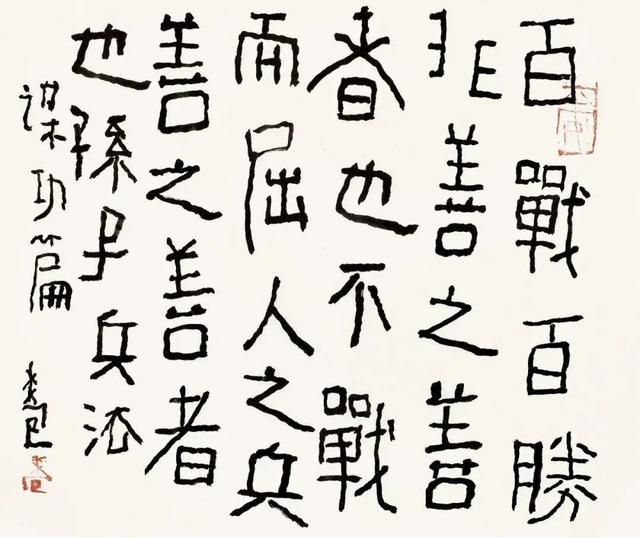 百戰百勝
非善之善
者也不戰
而屈人之兵
善之善者
也孫子兵法
謀功篇